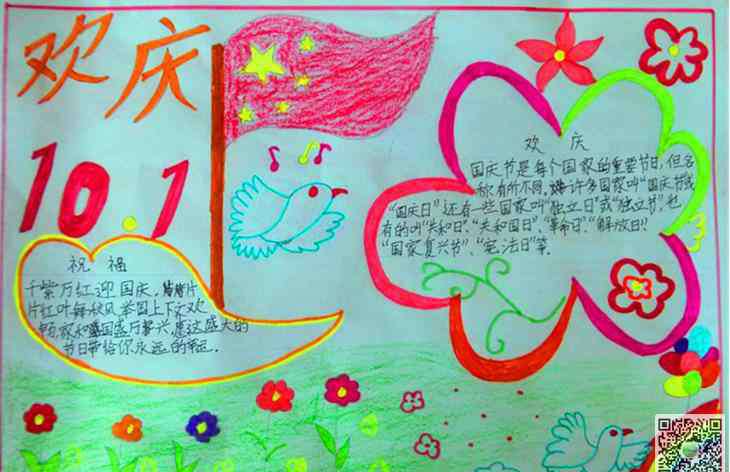 欢庆
10.1
祝福
千紫万红迎国庆，片片
片红叶舞秋风 举国上下齐欢
畅家和国盛万事兴 愿这盛大的
节日带给你永远的幸运．
欢庆
国庆节是每个国家的重要节日，但名
称有所不同，许多国家叫“国庆节或
“国庆日”，还有一些国家叫“独立日”或“独立节”，也
有的叫“共和日”、“共和国日”、“革命日”、“解放日”、
“国家复兴节”、“宪法日”等．